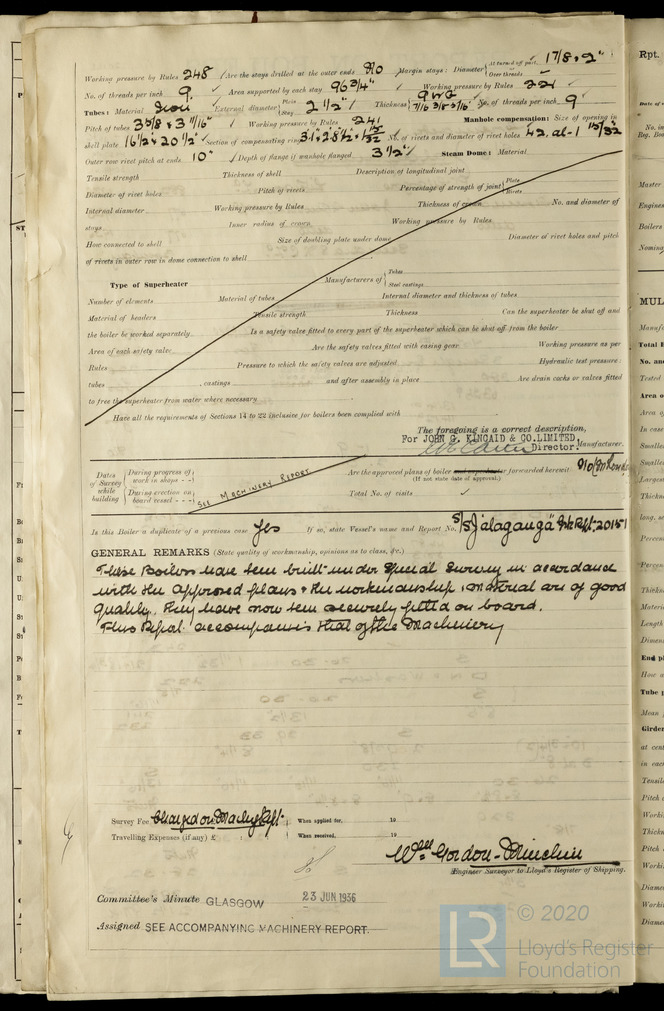 Working pressure by Rules 248 Are the stays drilled at the outer ends No Margin stays: Diameter { At turned off part, 1 7/8 & 2"
Over threads
No. of threads per inch 9. Area supported by each stay 96 3/4 " Working pressure by Rules 221
Tubes: Material Iron External diameter { Plain Stay 2 1/2" Thickness { 9 WG 7/16 3/8 5/16 No. of threads per inch 9
Pitch of tubes 3 5/8 & 3 11/16" Working pressure by Rules 241 Manhole compensation: Size of opening in
shell plate 16 1/2 x 20 1/2" Section of compensating ring No. of rivets and diameter of rivet holes 42, at 1 15/32
Outer row rivet pitch at ends 10" Depth of flange if manhole flanged 3 1/2" Steam Dome: Material
Tensile strength Thickness of shell Description of longitudinal joint
Diameter of rivet holes Pitch of rivets Percentage of strength of joint { Plate Rivets
Internal diameter Working pressure by Rules Thickness of crown No. and diameter of
stays Inner radius of crown Working pressure by Rules
How connected to shell Size of doubling plate under dome Diameter of rivet holes and pitch
of rivets in outer row in dome connection to shell
Type of Superheater Manufacturers of { Tubes Steel castings
Number of elements Material of tubes Internal diameter and thickness of tubes
Material of headers Tensile strength Thickness Can the superheater be shut off and
the boiler be worked separately Is a safety valve fitted to every part of the superheater which can be shut off from the boiler
Area of each safety valve Are the safety valves fitted with easing gear Working pressure as per
Rules Pressure to which the safety valves are adjusted Hydraulic test pressure:
tubes , castings and after assembly in place Are drain cocks or valves fitted
to free the superheater from water where necessary
Have all the requirements of Sections 14 to 22 inclusive for boilers been complied with
The foregoing is a correct description,
For JOHN G. KINCAID & CO. LIMITED,
Director. Manufacturer.
Dates of Survey while building { During progress of work in shops - - During erection on board vessel - - - SEE MACHINERY REPORT
Are the approved plans of boiler and superheater forwarded herewith No
(If not state date of approval.)
Total No. of visits
Is this Boiler a duplicate of a previous case Yes If so, state Vessel's name and Report No. S/S "Jalaganga" Gk Rpt. 20151
GENERAL REMARKS (State quality of workmanship, opinions as to class, &c.)
These Boilers have been built under Special Survey in accordance
with the approved plans & the workmanship & material are of good
quality. They have now been securely fitted on board.
This Report accompanies that of the Machinery
Survey Fee Charged on Machy Rpt. When applied for, 19
Travelling Expenses (if any) £ When received, 19
Wm Gordon-Minchin
Engineer Surveyor to Lloyd's Register of Shipping.
Committee's Minute GLASGOW 23 JUN 1936
Assigned SEE ACCOMPANYING MACHINERY REPORT.
LR © 2020
Lloyd's Register
Foundation
Rpt.
Master
Engines
Boilers
MUL